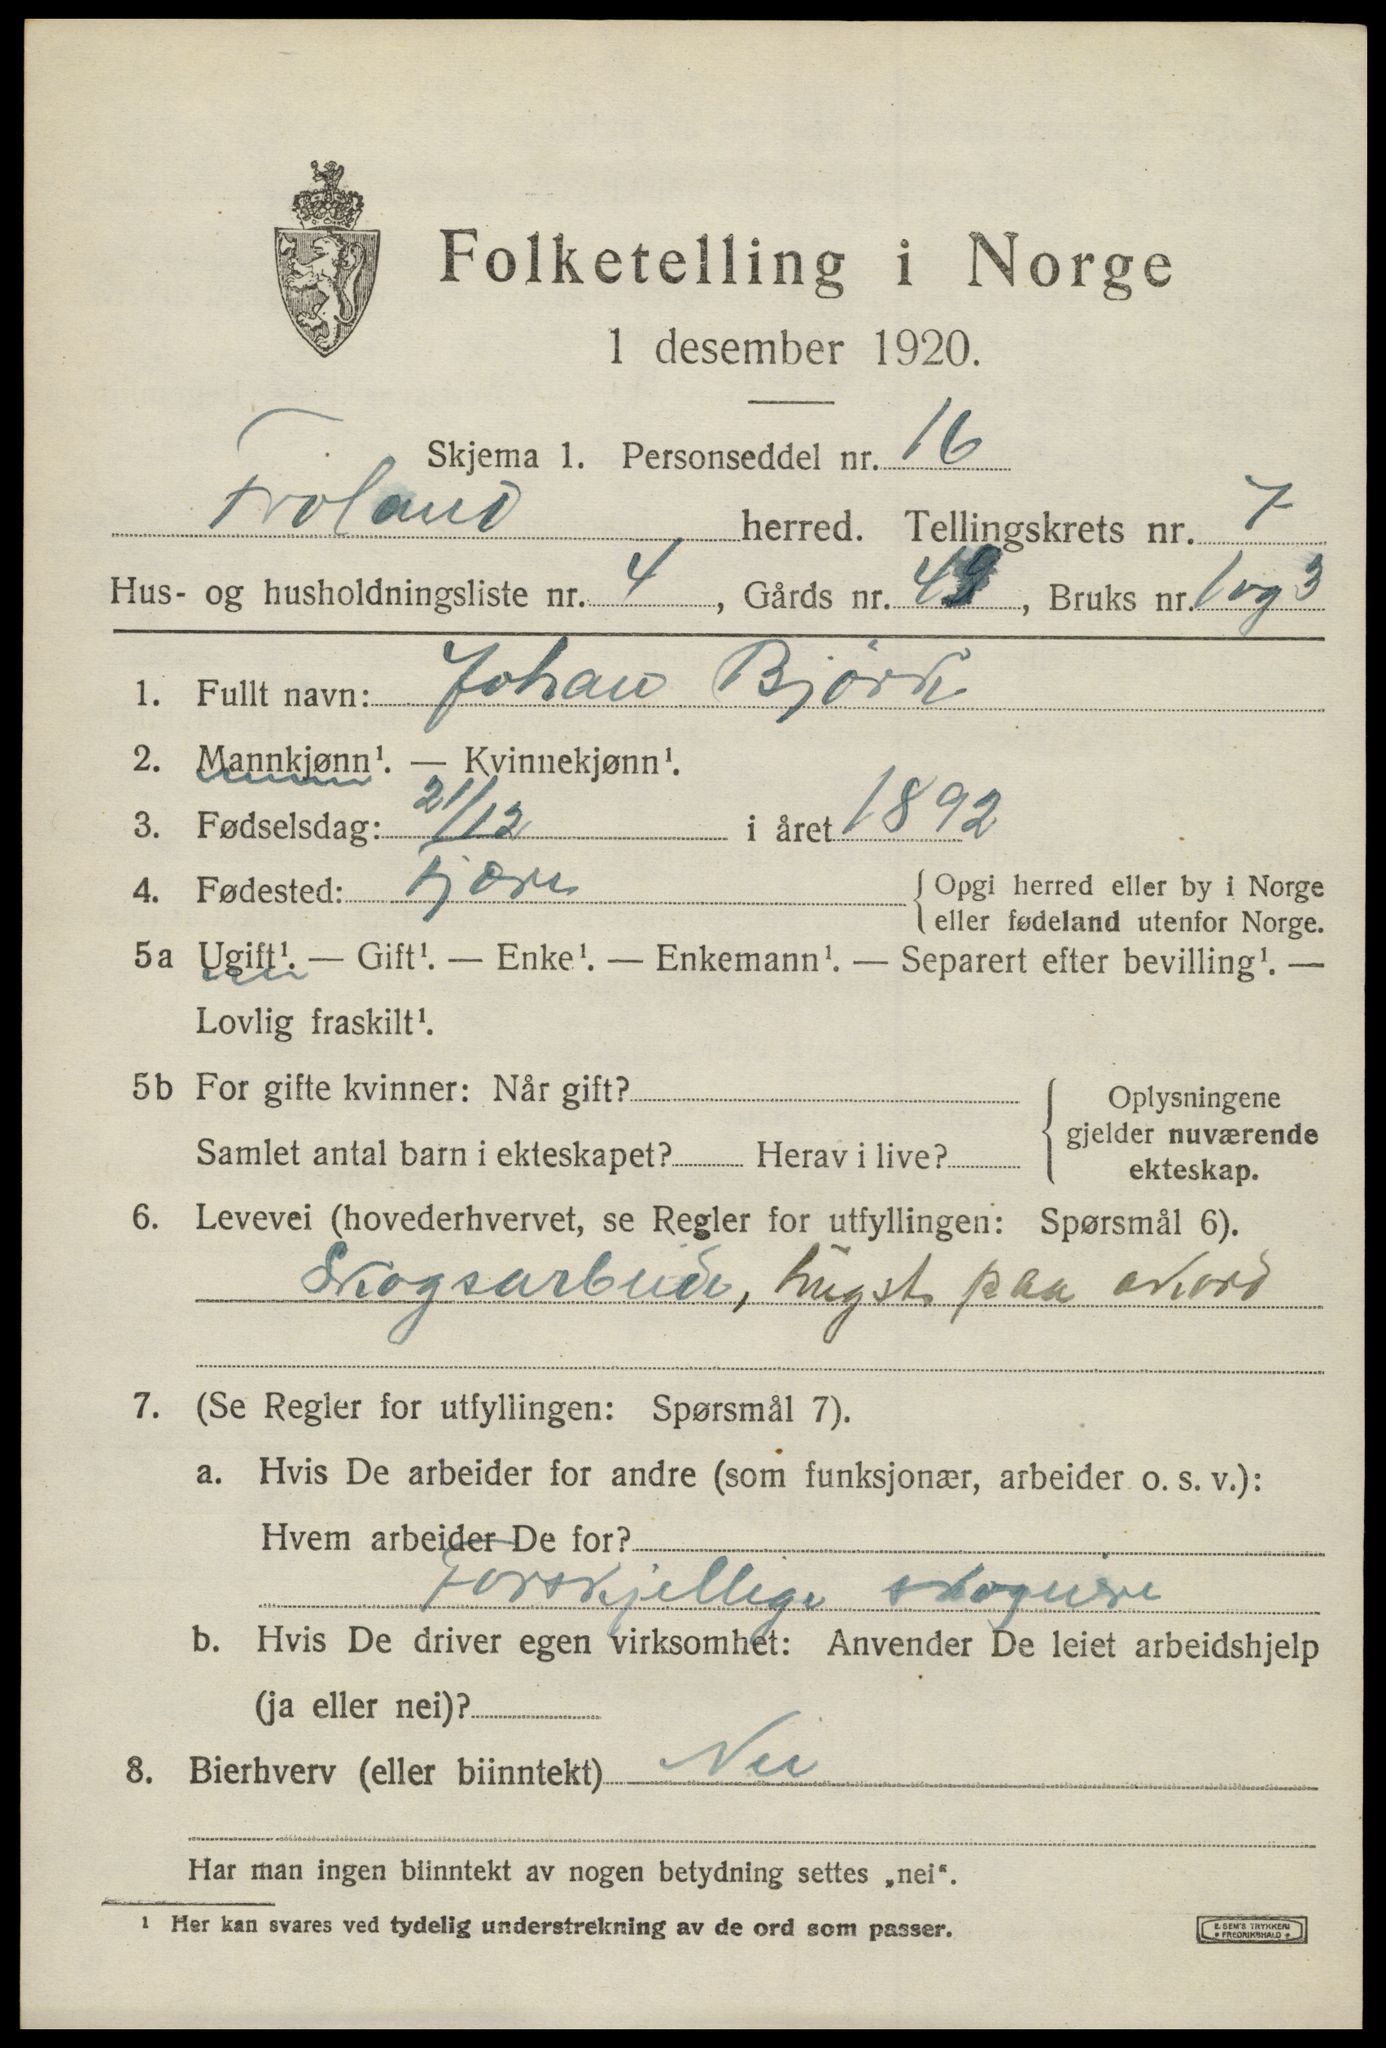 Folketelling i Norge
1 desember 1920.
Skjema 1. Personseddel nr. 16
Froland herred. Tellingskrets nr. 7
Hus- og husholdningsliste nr. 4, Gårds nr. 49, Bruks nr. 1 og 3
1. Fullt navn: Johan Bjørk
2. Mannkjønn¹. — Kvinnekjønn¹.
3. Fødselsdag: 21/12 i året 1892
4. Fødested: Fjære { Opgi herred eller by i Norge
eller fødeland utenfor Norge.
5a Ugift¹. — Gift¹. — Enke¹. — Enkemann¹. — Separert efter bevilling¹. —
Lovlig fraskilt¹.
5b For gifte kvinner: Når gift? { Oplysningene
gjelder nuværende
Samlet antal barn i ekteskapet? Herav i live? ekteskap.
6. Levevei (hovederhvervet, se Regler for utfyllingen: Spørsmål 6).
Skogsarbeide, hugst paa akord
7. (Se Regler for utfyllingen: Spørsmål 7).
a. Hvis De arbeider for andre (som funksjonær, arbeider o. s. v.):
Hvem arbeider De for?
Forskjellige skogeiere
b. Hvis De driver egen virksomhet: Anvender De leiet arbeidshjelp
(ja eller nei)?
8. Bierhverv (eller biinntekt) Nei
Har man ingen biinntekt av nogen betydning settes „nei“.
¹ Her kan svares ved tydelig understrekning av de ord som passer.
E. SEM'S TRYKKERI
FREDRIKSHALD